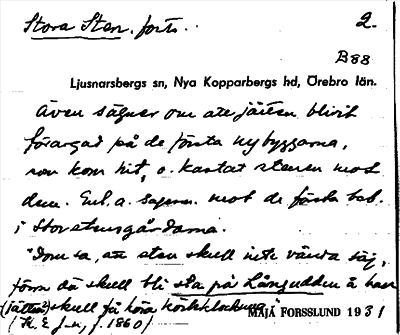 Stora Sten. forts. 2.
B88
Ljusnarsbergs sn, Nya Kopparbergs hd, Örebro län.
Även sägner om att jätten blivit
förargad på de första nybyggarna,
som kom hit, o. kastat stenen mot
dem. Enl. a. sägner mot de första bob.
i Storstensgårdarna.
"Dom sa, att sten skull inte vända säj,
förrn dä skull bli sta på Långudden å han
(jätten) skull få höra körkklockuna"
(K. E. J-n, f. 1860)
MAJA FORSSLUND 1931